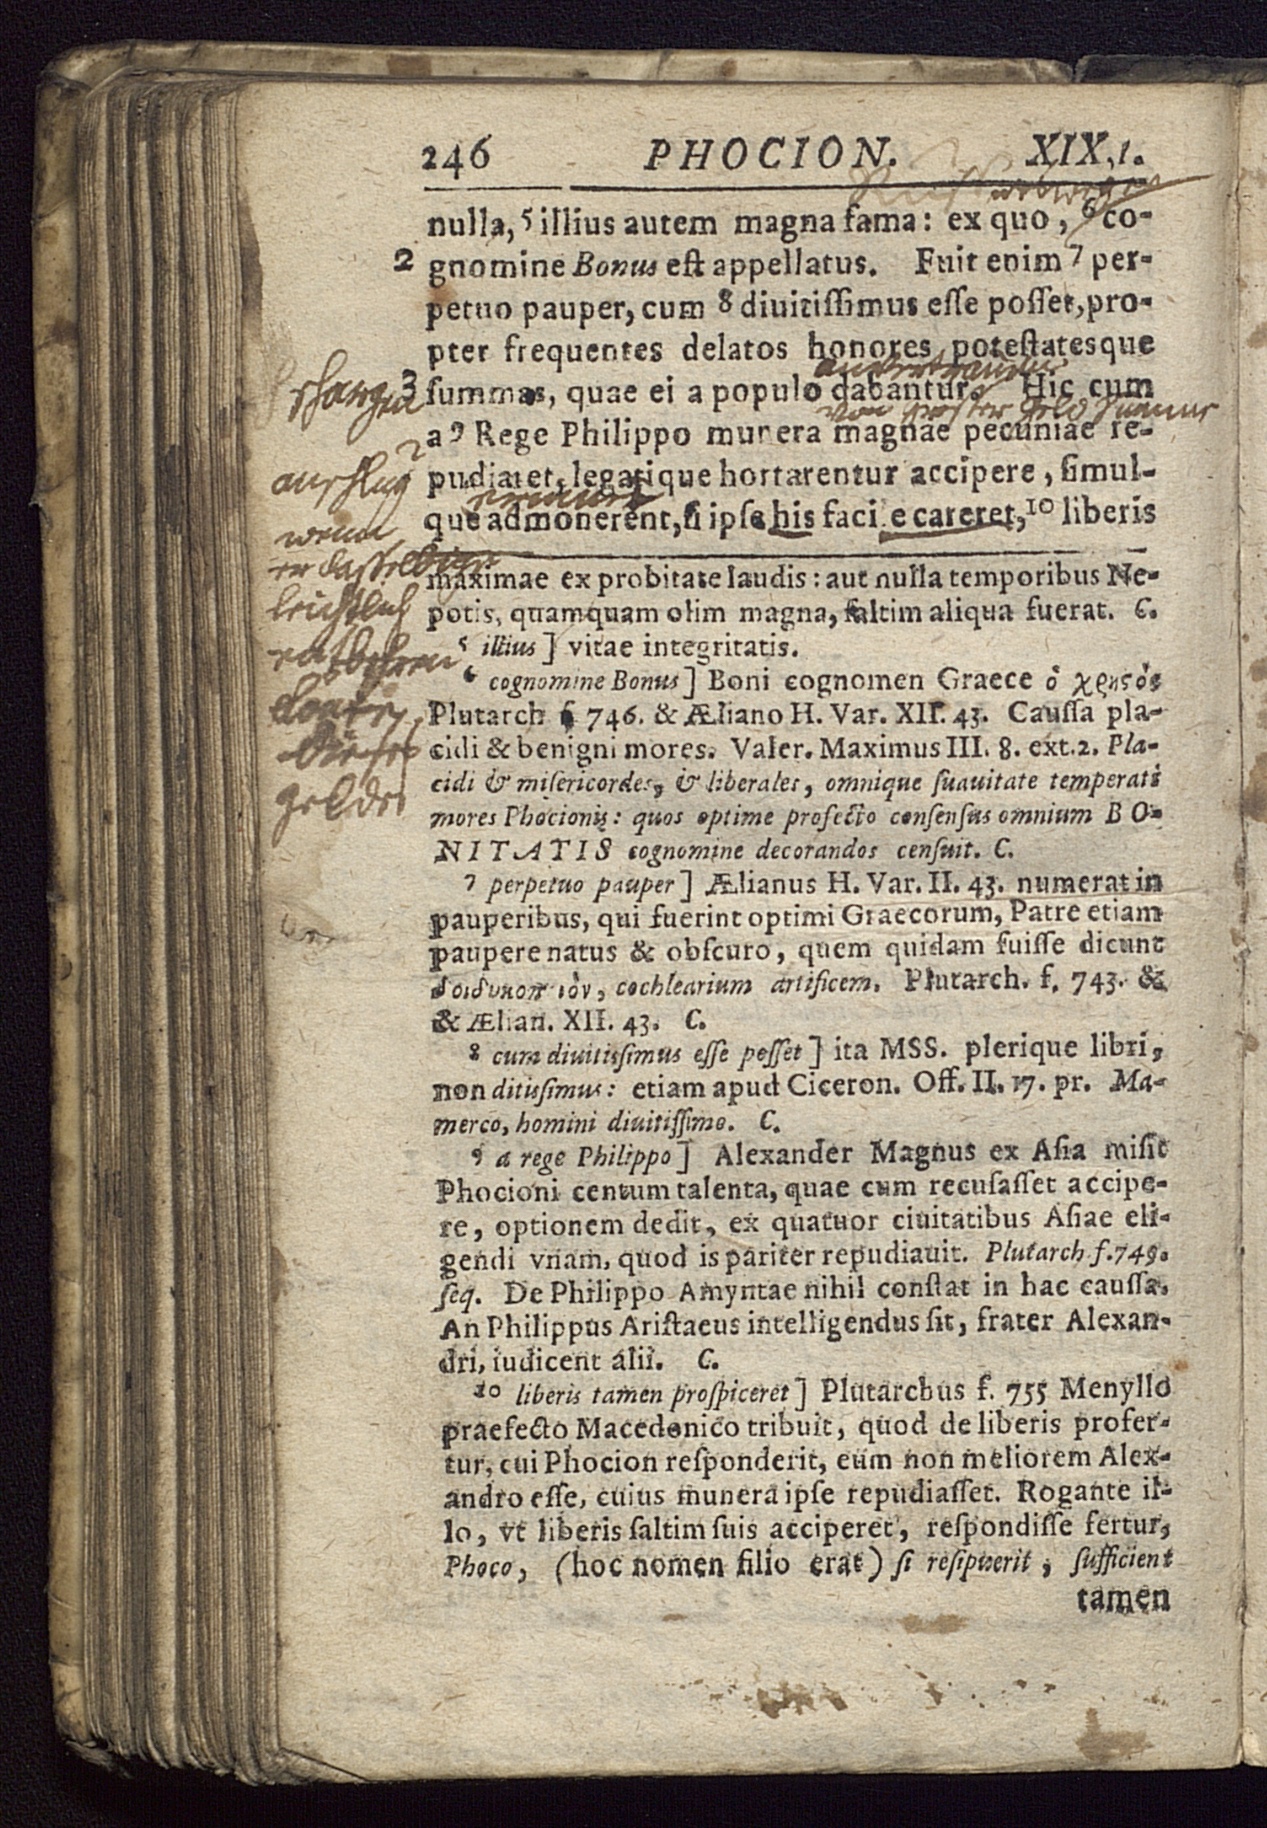 246 PHOCION. XIX, 1.
nulla, ⁵ illius autem magna fama: ex quo, ⁶ co-
2 gnomine Bonus eſt appellatus. Fuit enim ⁷ per-
petuo pauper, cum ⁸ diuitiſſimus eſſe poſſet, pro-
pter frequentes delatos honores potestatesque
anvertrauter
3 ſummas, quae ei a populo dabantur. Hic cum
von groſter geld Summe
a ⁹ Rege Philippo munera magnae pecuniae re-
pudiaret, legatique hortarentur accipere, ſimul-
que admonerent, ſi ipſe his facile careret, ¹⁰ liberis
ausſchlug
wenn
er daſſelbige
leichtlich
entbehren
dieſes
geldes
maximae ex probitate laudis: aut nulla temporibus Ne-
potis, quamquam olim magna, ſaltim aliqua fuerat. C.
⁵ illius] vitae integritatis.
⁶ cognomine Bonus] Boni cognomen Graece ὁ χρηϛός
Plutarch f 746. & Æliano H. Var. XII. 43. Cauſſa pla-
cidi & benigni mores. Valer. Maximus III. 8. ext. 2. Pla-
cidi & miſericordes, & liberales, omnique ſuauitate temperati
mores Phocionis: quos optime profecto conſenſus omnium BO-
NITATIS cognomine decorandos cenſuit. C.
⁷ perpetuo pauper] Ælianus H. Var. II. 43. numerat in
pauperibus, qui fuerint optimi Graecorum, Patre etiam
paupere natus & obſcuro, quem quidam fuiſſe dicunt
δοιδυκοποιὸν, cochlearium artificem. Plutarch. f. 743. &
& Ælian. XII. 43. C.
⁸ cum diuitiſsimus eſſe poſſet] ita MSS. plerique libri,
non ditiſsimus: etiam apud Ciceron. Off. II. 17. pr. Ma-
merco, homini diuitiſſimo. C.
⁹ a rege Philippo] Alexander Magnus ex Aſia miſit
Phocioni centum talenta, quae cum recuſaſſet accipe-
re, optionem dedit, ex quatuor ciuitatibus Aſiae eli-
gendi vnam, quod is pariter repudiauit. Plutarch f. 749.
ſeq. De Philippo Amyntae nihil conſtat in hac cauſſa.
An Philippus Ariſtaeus intelligendus ſit, frater Alexan-
dri, iudicent alii. C.
¹⁰ liberis tamen proſpiceret] Plutarchus f. 755 Menyllo
praefecto Macedonico tribuit, quod de liberis profer-
tur, cui Phocion reſponderit, eum non meliorem Alex-
andro eſſe, cuius munera ipſe repudiaſſet. Rogante il-
lo, vt liberis ſaltim ſuis acciperet, reſpondiſſe fertur,
Phoco, (hoc nomen filio erat) ſi reſipuerit, ſufficient
tamen